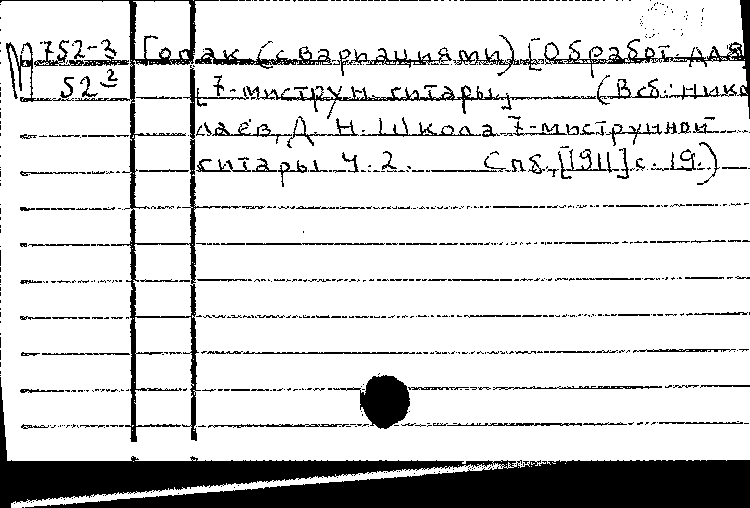 М 752-3 Гопак (с вариациями) [Обработ. для
52² [7-миструн. гитары] (В сб.: Нико
лаев, Д. Н. Школа 7-миструнной
гитары Ч. 2. Спб, [1911] с. 19.)